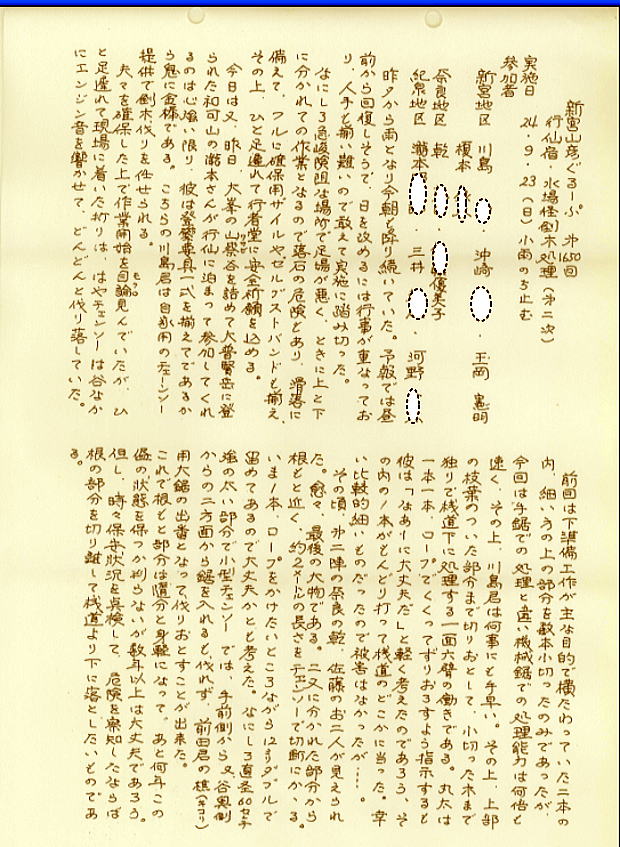 新宮山彦ぐるーぷ 第1650回
行仙宿・水場怪倒木処理(第二次)
実施日 24.9.23(日)小雨のち止む
参加者
新宮地区 川島 ・沖崎 ・玉岡 憲明
榎本
奈良地区 乾 ・ 優美子
紀泉地区 瀧本 ・三井 ・河野
昨夕から雨となり今朝も降り続いていた。予報では昼
前から回復しそうで、日を改めるには行事が重なってお
り、人手も揃い難いので敢えて実施に踏み切った。
なにしろ急峻険阻な場所で足場が悪く、ときに上と下
に分かれての作業となるので落石の危険もあり、滑落に
備えて、フルに確保用ザイルやゼルプストバンドも揃え、
その上、ひと足遅れて行者堂に安全祈願を込める。
今日は又、昨日、大峯の山葵谷を詰めて大普賢岳に登
られた和可山の瀧本さんが行仙に泊まって参加してくれ
るのは心強い限り、彼は登攀専具一式を揃えてであるか
ら鬼に金棒である。こちらの川島君は自家用のチェーンソー
提供で倒木伐りを任せられる。
夫々を確保した上で作業開始を目論見んでいたが、ひ
と足遅れて現場に着いた折りは、はやチェンソーは谷なか
にエンジン音を響かせて、どんどんと伐り落していた。
前回は下準備工作が主な目的で横たわっていた二本の
内、細い方の上の部分を数本小切ったのみであったが、
今回は手鋸での処理と違い機械鋸での処理能力は何倍と
速く、その上、川島君は何事にも手早い。その上、上部
の枝葉のついた部分まで切りおとして、小切った木まで
独りで桟道下に処理する一面六臂の働きである。丸太は
一本一本、ロープでくくってずりおろすよう指示すると
彼は「なあーに大丈夫だ」と軽く考えたのであろう、そ
の内の1本がもんどり打って桟道のどこかに当った。幸
い比較的細いものだったので被害はなかったが…。
その頃、第二陣の奈良の乾、佐藤のお二人が見えられ
た。愈々、最後の大物である。二又に分かれた部分から
根もと近く、約2メートルの長さをチェンソーで切断にかゝる。
いま1本、ロープをかけたいところながら12ミリダブルで
留めてあるので大丈夫かとも考えた。なにしろ直径60センチ
強の太い部分で小型チェンソーでは、手前側から又谷奥側
からの二方面から鋸を入れるも伐れず、前田君の樵(キコリ)
用大鋸の出番となって伐りおとすことが出来た。
これで根もと部分は随分と身軽になって、あと何年この
儘の状態を保つか判らないが数年以上は大丈夫であろう。
但し、時々保安状況を点検して、危険を察知したならば
根の部分を切り離して桟道より下に落としたいものであ
る。